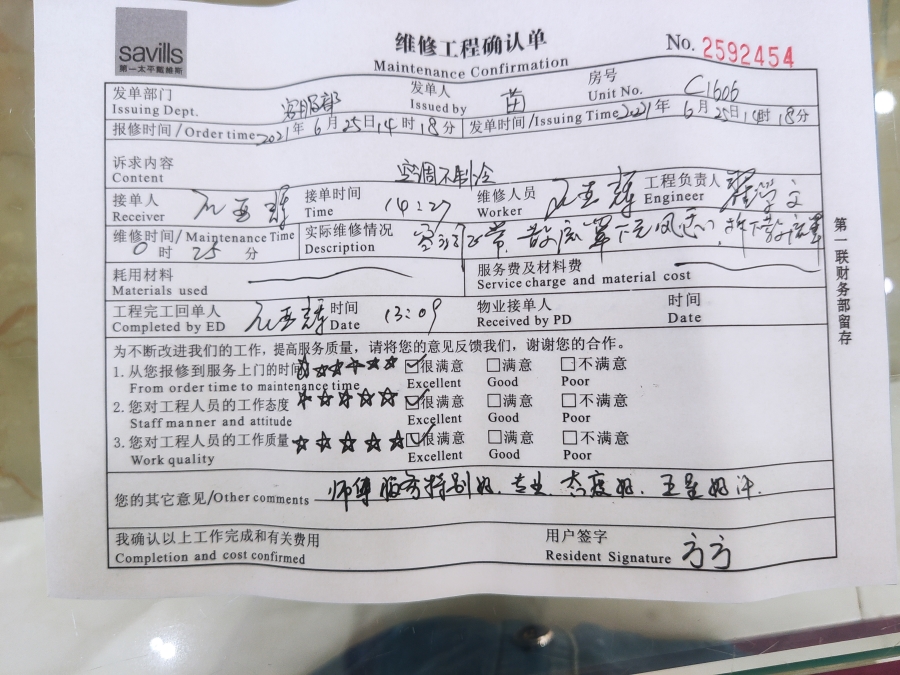 savills
第一太平戴维斯
维修工程确认单
Maintenance Confirmation
No. 2592454
发单部门 客服部 发单人 苗 房号 C1606
Issuing Dept. Issued by Unit No.
报修时间/Order time 2021年6月25日14时18分 发单时间/Issuing Time 2021年6月25日14时18分
诉求内容 空调不制冷
Content
接单人 接单时间 14:27 维修人员 工程负责人
Receiver Time Worker Engineer
维修时间/Maintenance Time 实际维修情况
0时25分 Description
耗用材料 服务费及材料费
Materials used Service charge and material cost
工程完工回单人 时间 13:09 物业接单人 时间
Completed by ED Date Received by PD Date
为不断改进我们的工作，提高服务质量，请将您的意见反馈我们，谢谢您的合作。
1. 从您报修到服务上门的时间 ☆☆☆☆☆ ☑很满意 □满意 □不满意
From order time to maintenance time Excellent Good Poor
2. 您对工程人员的工作态度 ☆☆☆☆☆ ☑很满意 □满意 □不满意
Staff manner and attitude Excellent Good Poor
3. 您对工程人员的工作质量 ☆☆☆☆☆ ☑很满意 □满意 □不满意
Work quality Excellent Good Poor
您的其它意见/Other comments 师傅服务特别好、专业、态度好、五星好评.
我确认以上工作完成和有关费用 用户签字 方方
Completion and cost confirmed Resident Signature
第一联财务部留存